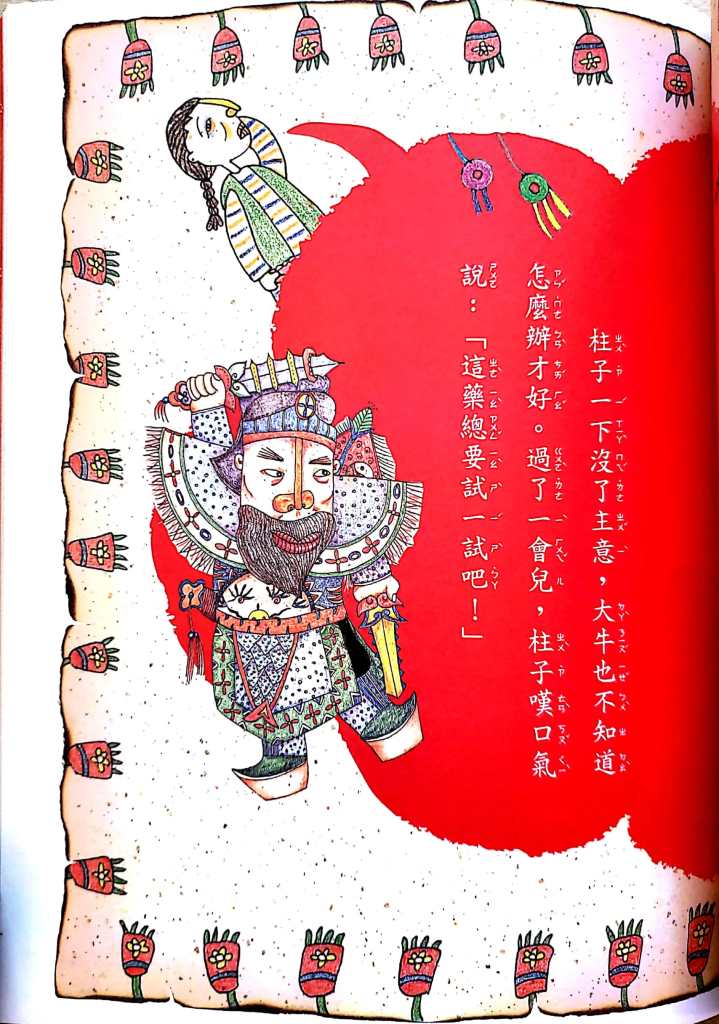 柱子一下沒了主意，大牛也不知道
怎麼辦才好。過了一會兒，柱子嘆口氣
說：「這藥總要試一試吧！」